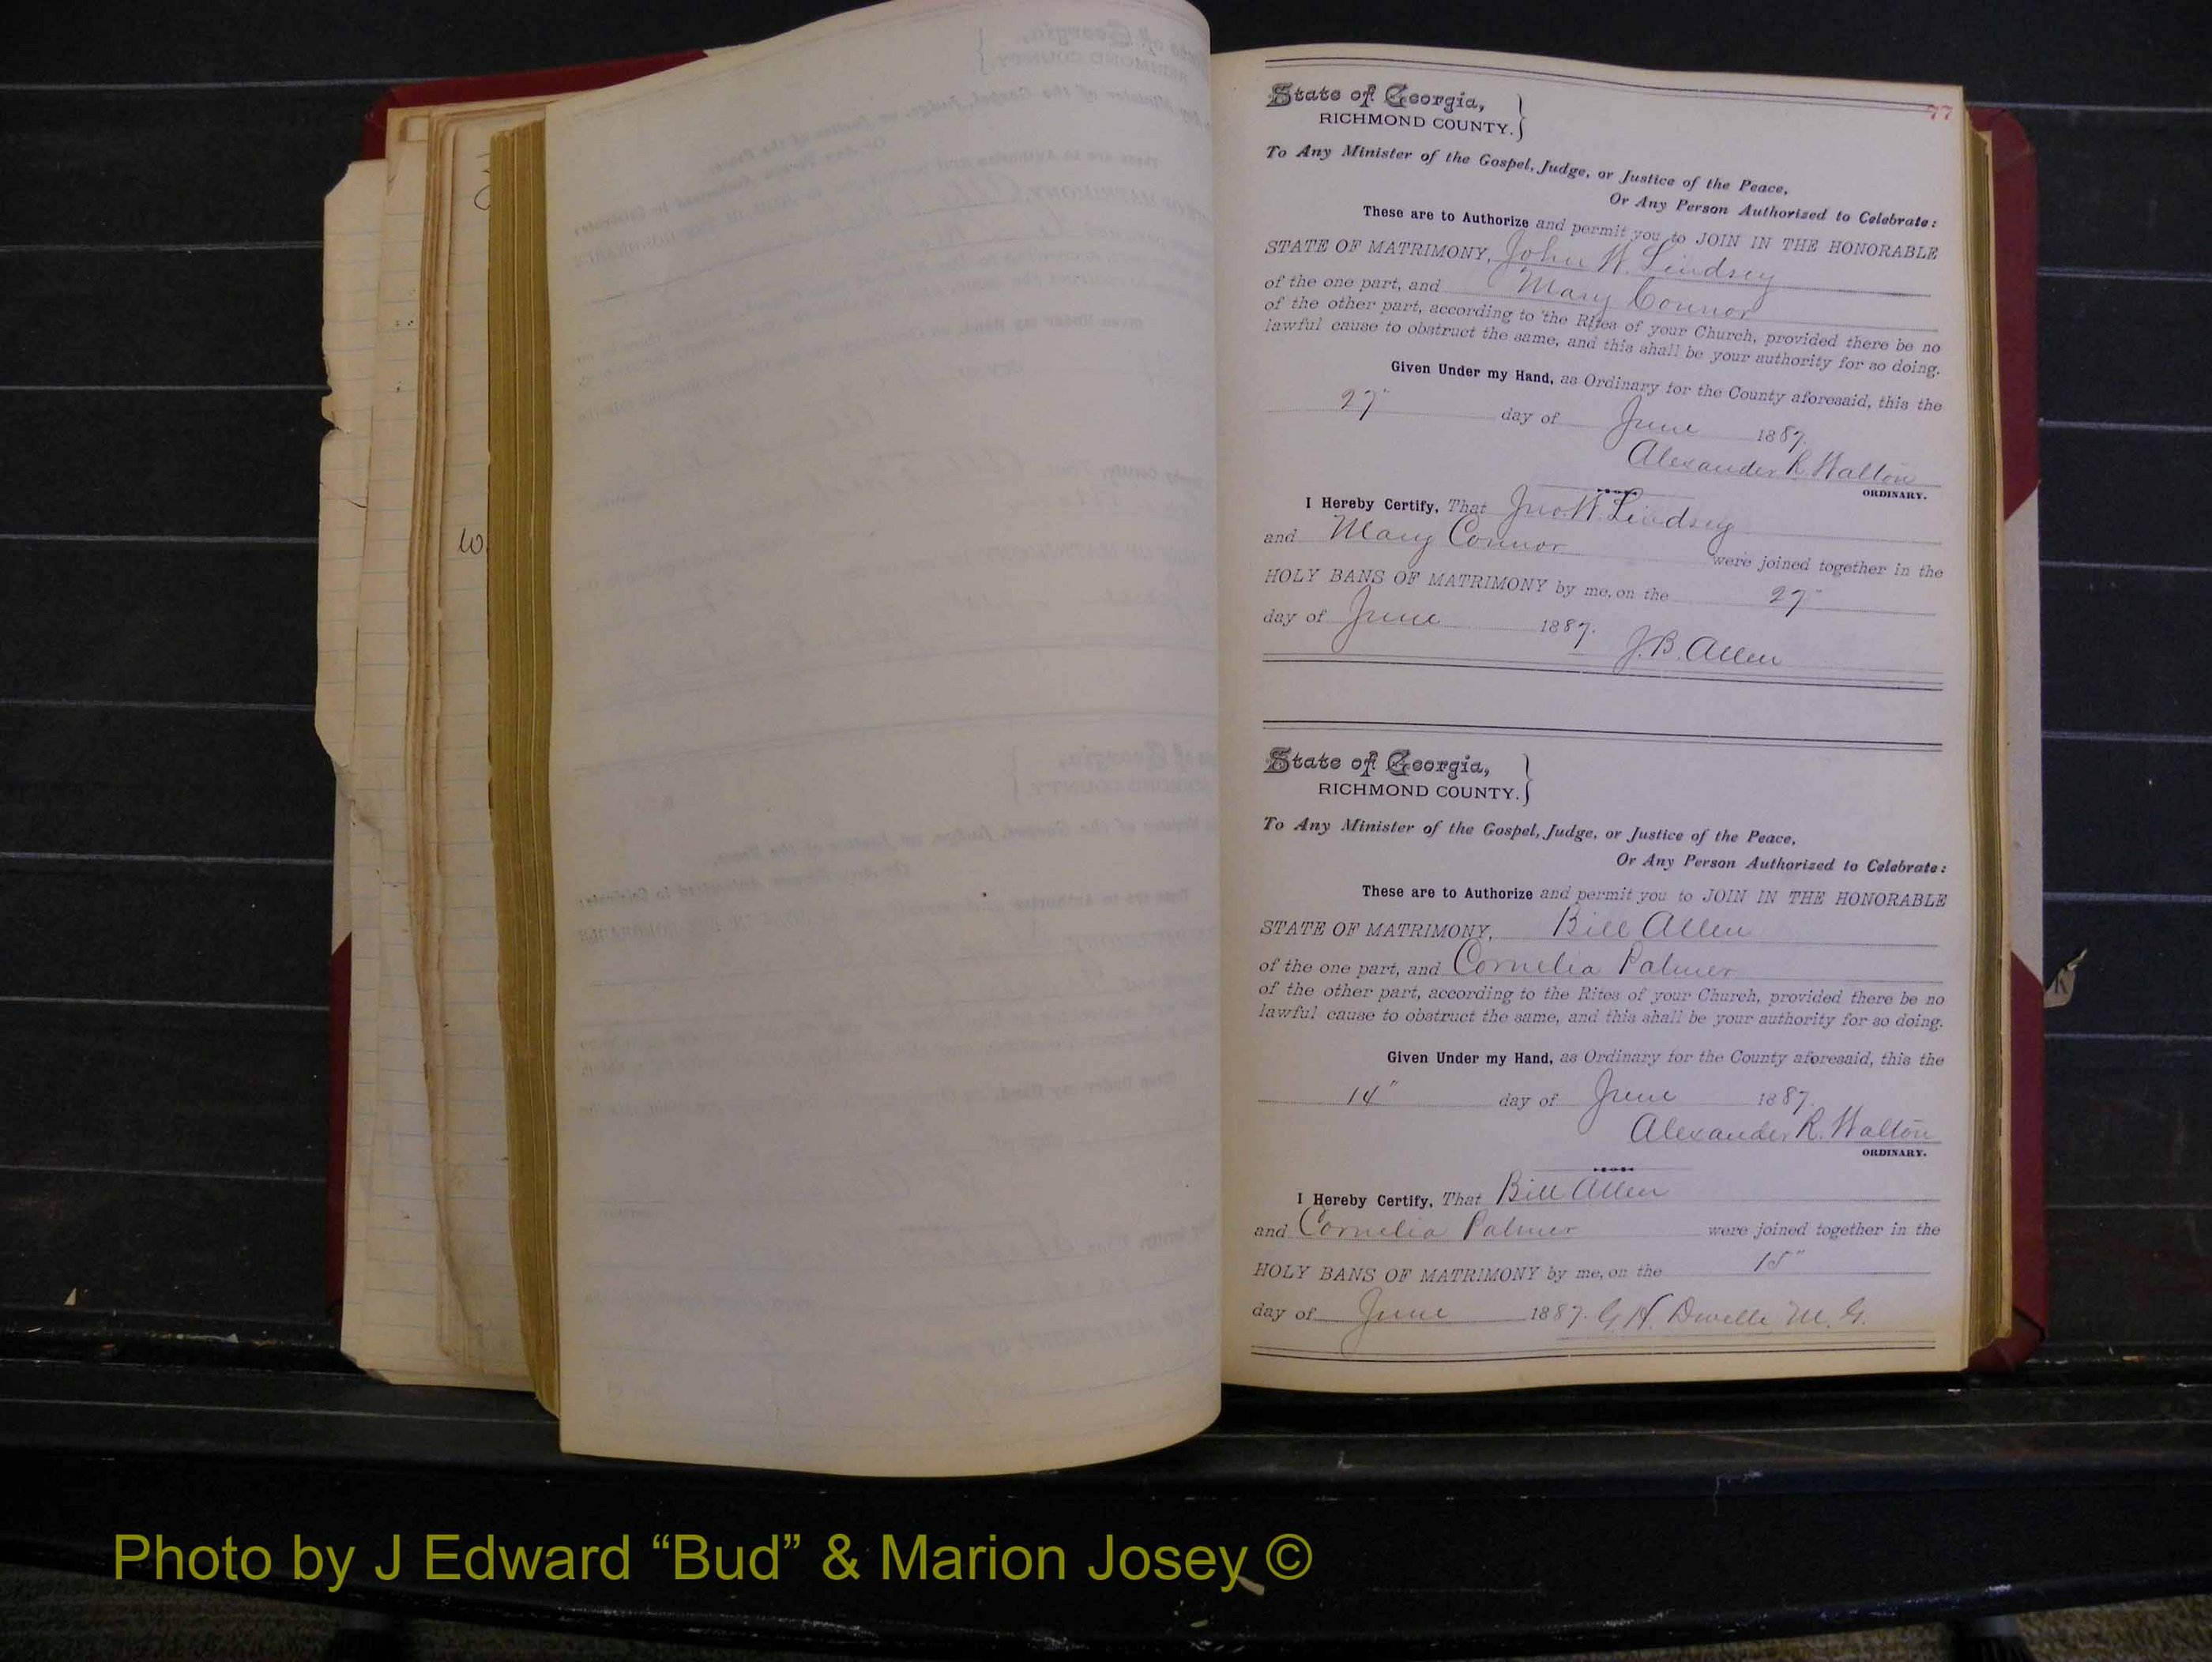 77
State of Georgia,
RICHMOND COUNTY.
To Any Minister of the Gospel, Judge, or Justice of the Peace,
Or Any Person Authorized to Celebrate:
These are to Authorize and permit you to JOIN IN THE HONORABLE
STATE OF MATRIMONY, John W. Lindsey
of the one part, and Mary Connor
of the other part, according to the Rites of your Church, provided there be no
lawful cause to obstruct the same, and this shall be your authority for so doing.
Given Under my Hand, as Ordinary for the County aforesaid, this the
27" day of June 1887.
Alexander R. Walton
ORDINARY.
I Hereby Certify, That Jno. W. Lindsey
and Mary Connor were joined together in the
HOLY BANS OF MATRIMONY by me, on the 27"
day of June 1887.
J. B. Allen
State of Georgia,
RICHMOND COUNTY.
To Any Minister of the Gospel, Judge, or Justice of the Peace,
Or Any Person Authorized to Celebrate:
These are to Authorize and permit you to JOIN IN THE HONORABLE
STATE OF MATRIMONY, Bill Allen
of the one part, and Cornelia Palmer
of the other part, according to the Rites of your Church, provided there be no
lawful cause to obstruct the same, and this shall be your authority for so doing.
Given Under my Hand, as Ordinary for the County aforesaid, this the
14" day of June 1887.
Alexander R. Walton
ORDINARY.
I Hereby Certify, That Bill Allen
and Cornelia Palmer were joined together in the
HOLY BANS OF MATRIMONY by me, on the 15"
day of June 1887. G. H. Dwelle M. G.
Photo by J Edward “Bud” & Marion Josey ©